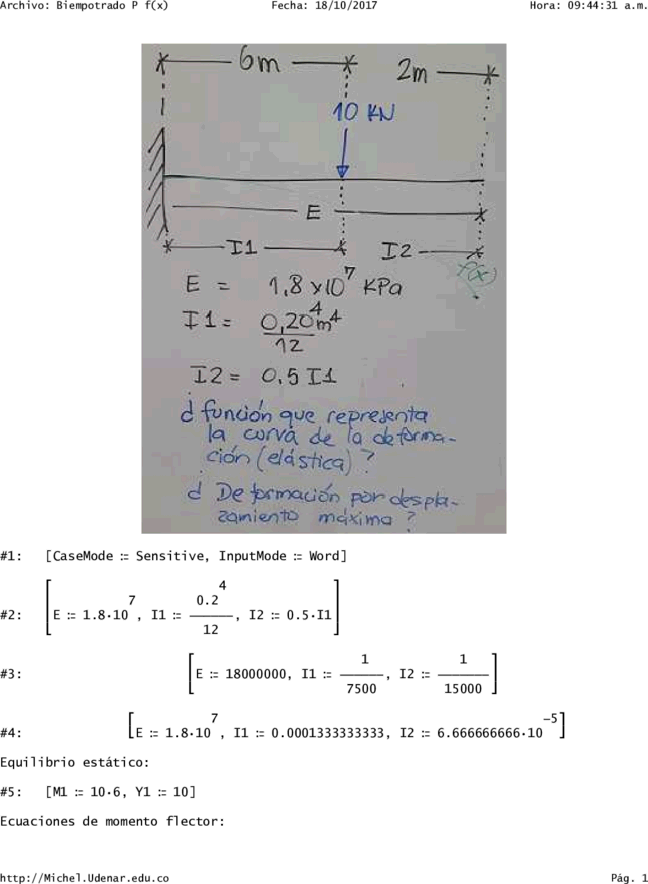 Archivo: Biempotrado P f(x) Fecha: 18/10/2017 Hora: 09:44:31 a.m.
6m 2m
10 KN
E
I1 I2
f(x)
E = 1,8 x10^7 KPa
I1 = 0,20^4 m^4 / 12
I2 = 0.5 I1
¿ función que representa
la curva de la deforma-
ción (elástica) ?
¿ Deformación por despla-
zamiento máximo ?
#1: [CaseMode ≔ Sensitive, InputMode ≔ Word]
#2: [E ≔ 1.8·10^7, I1 ≔ 0.2^4 / 12, I2 ≔ 0.5·I1]
#3: [E ≔ 18000000, I1 ≔ 1 / 7500, I2 ≔ 1 / 15000]
#4: [E ≔ 1.8·10^7, I1 ≔ 0.0001333333333, I2 ≔ 6.666666666·10^-5]
Equilibrio estático:
#5: [M1 ≔ 10·6, Y1 ≔ 10]
Ecuaciones de momento flector:
http://Michel.Udenar.edu.co Pág. 1